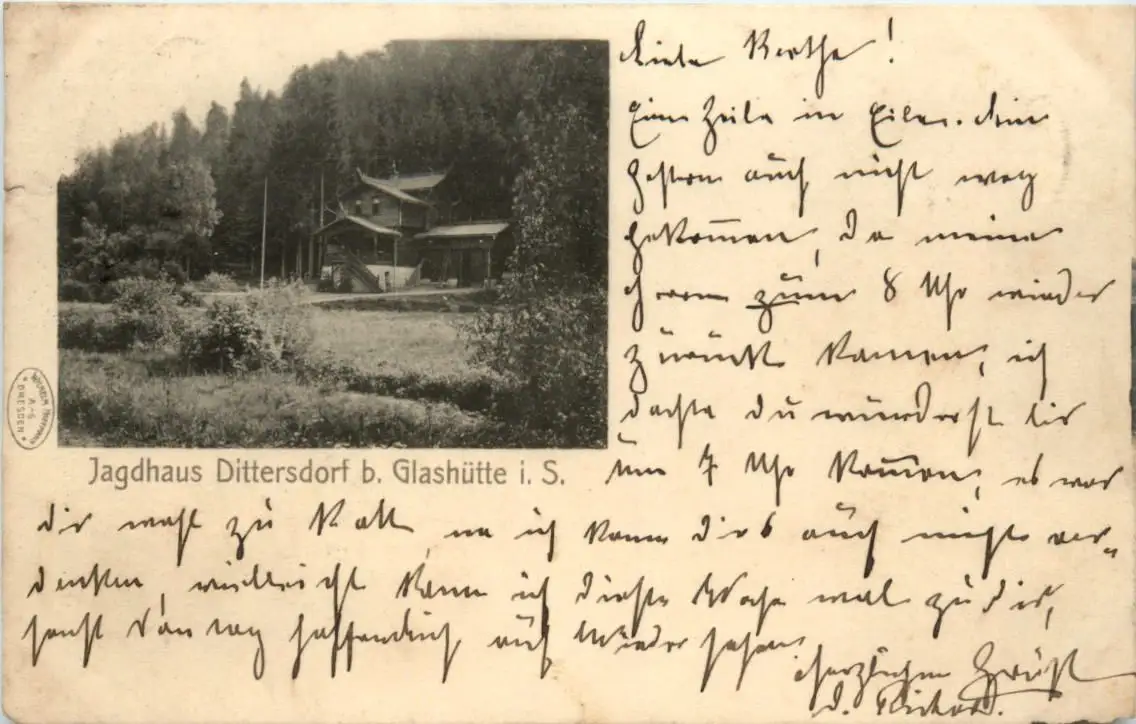 Liebe Berthe!
Eine Zeile in Eile. bin
gestern auch nicht weg
gekommen, da meine
zum 8 Uhr wieder
zurück kamen, ich
dachte du würdest bis
um 7 Uhr kommen, es war
dir wohl zu kalt, na ich kann dir's auch nicht ver-
denken, vielleicht kann ich diese Woche mal zu dir,
sonst Sonntag hoffendlich auf Wiedersehen
herzlichen Gruß
d. Richard.
Jagdhaus Dittersdorf b. Glashütte i. S.
WILHELM HOFFMANN
A-G
DRESDEN